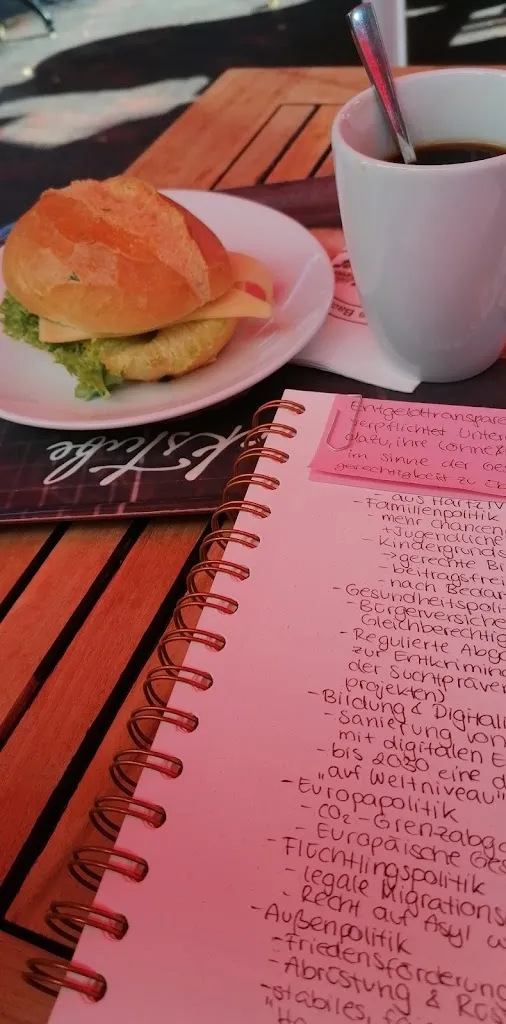 Entgelttranspare
verpflichtet Unter
dazu, ihre Löhne&
im Sinne der Ges
gerechtigkeit zu
- aus Hartz IV
- Familienpolitik
- mehr Chancen
+ Jugendliche
- Kindergrunds
→ gerechte Bi
- beitragsfrei
- nach Bedar
- Gesundheitspoli
- Bürgerversiche
Gleichberechtig
- Regulierte Abga
zur Entkrimin
der Suchtpräven
projekten)
- Bildung & Digitali
- Sanierung von
mit digitalen E
- bis 2030 eine d
"auf Weltniveau"
- Europapolitik
- CO₂-Grenzabga
- Europäische Ges
- Flüchtlingspolitik
- legale Migrations
- Recht auf Asyl w
- Außenpolitik
- Friedensförderung
- Abrüstung & Rüs
- "stabiles,
kstube